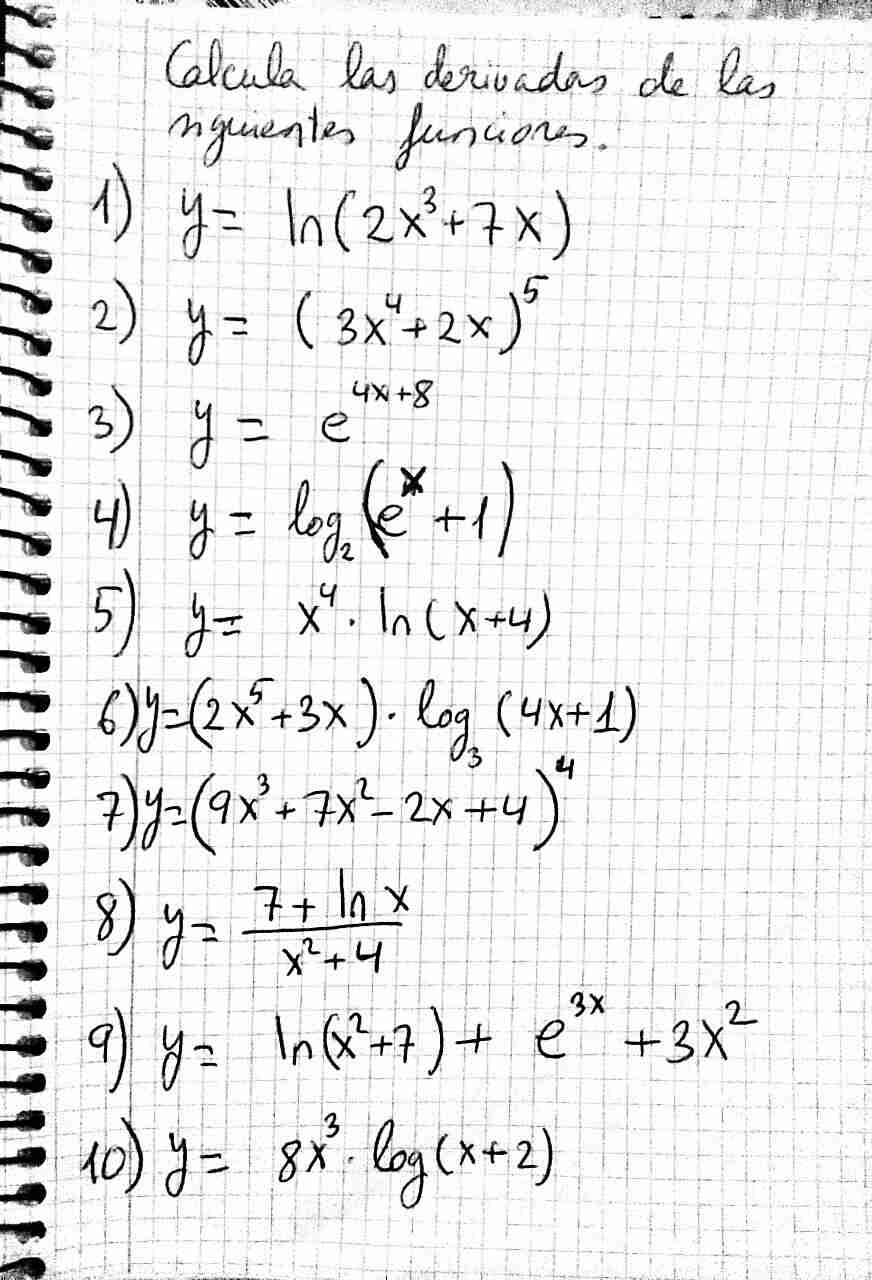 Calcula las derivadas de las
siguientes funciones.
1) y = ln(2x³+7x)
2) y = (3x⁴+2x)⁵
3) y = e⁴ˣ⁺⁸
4) y = log₂(eˣ+1)
5) y = x⁴·ln(x+4)
6) y=(2x⁵+3x)·log₃(4x+1)
7) y=(9x³+7x²-2x+4)⁴
8) y = (7+ln x)/(x²+4)
9) y = ln(x²+7)+ e³ˣ +3x²
10) y = 8x³·log(x+2)